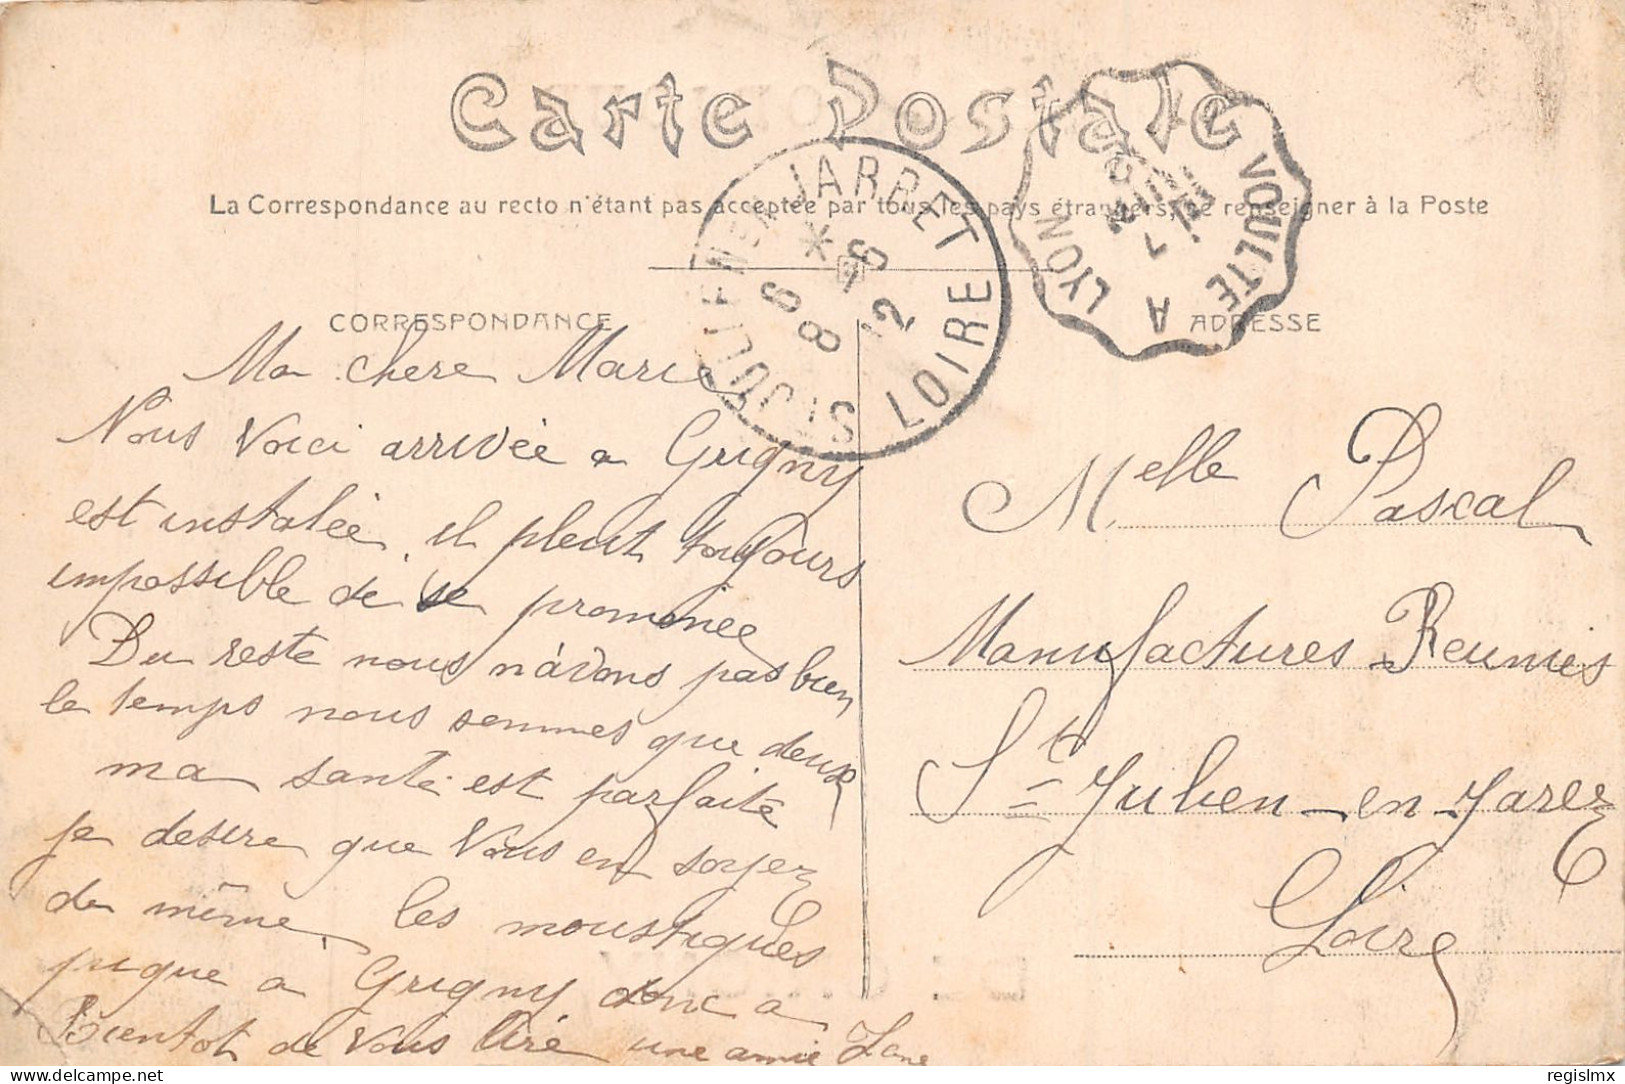 Carte Postale
La Correspondance au recto n'étant pas acceptée par tous les pays étrangers, se renseigner à la Poste
CORRESPONDANCE
ADRESSE
ST JULIEN-EN-JARRET
LOIRE
* 16
6 8 12
LYON A VOULTE
7
Ma chere Marie
Nous Voici arrivée a Grigny
est instalée, il pleut toujours
impossible de se prominée
Du reste nous n'avons pas bien
le temps nous sommes que deux
ma santé est parfaite
je desire que Vous en soyez
de même, les moustiques
pique a Grigny donc a
Bientot de Vous liré une amie
Melle Pascal
Manufactures Reunies
St Julien-en-Jarez
Loire
regislmx